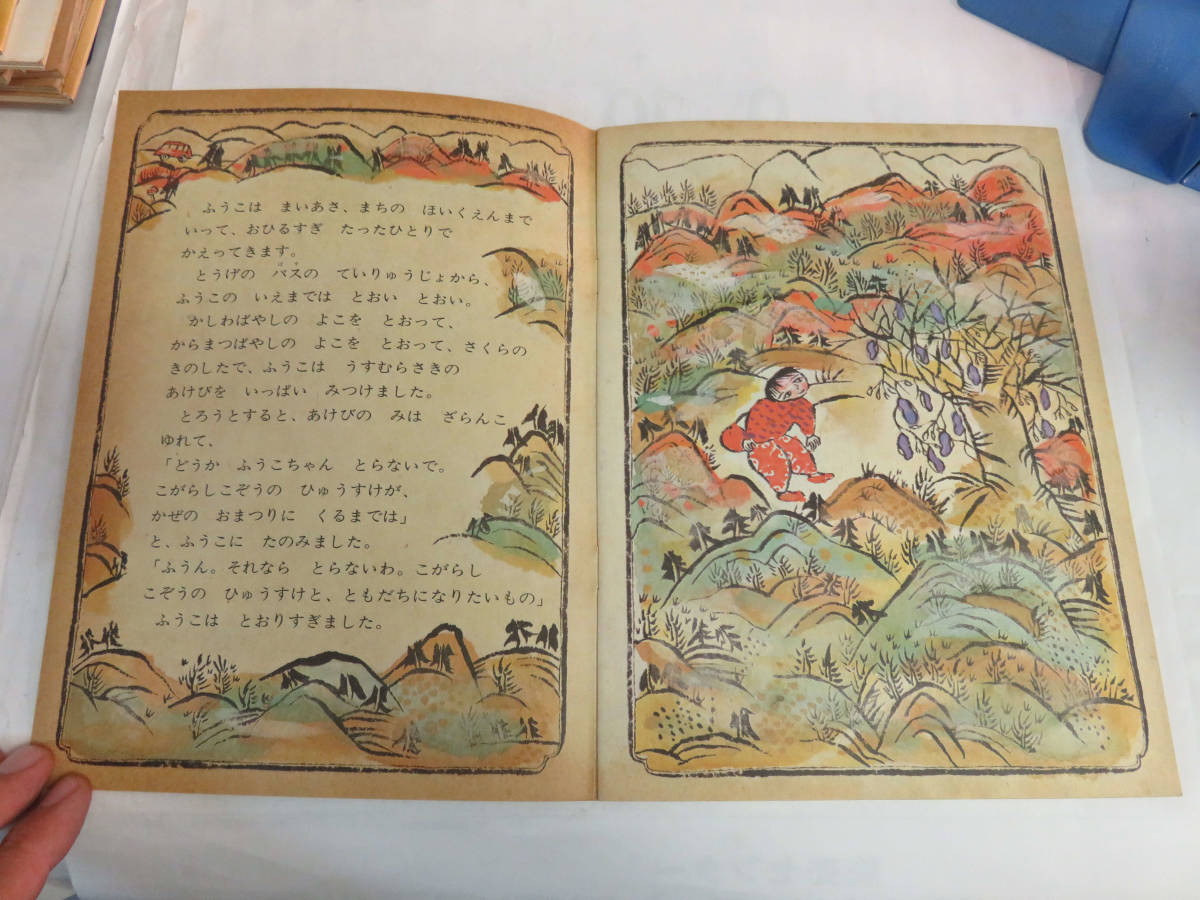 ふうこは　まいあさ、まちの　ほいくえんまで
いって、おひるすぎ　たったひとりで
かえってきます。
とうげの　バスの　ていりゅうじょから、
ふうこの　いえまでは　とおい　とおい。
かしわばやしの　よこを　とおって、
からまつばやしの　よこを　とおって、さくらの
きのしたで、ふうこは　うすむらさきの
あけびを　いっぱい　みつけました。
とろうとすると、あけびの　みは　ざらんこ
ゆれて、
「どうか　ふうこちゃん　とらないで。
こがらしこぞうの　ひゅうすけが、
かぜの　おまつりに　くるまでは」
と、ふうこに　たのみました。
「ふうん。それなら　とらないわ。こがらし
こぞうの　ひゅうすけと、ともだちになりたいもの」
ふうこは　とおりすぎました。